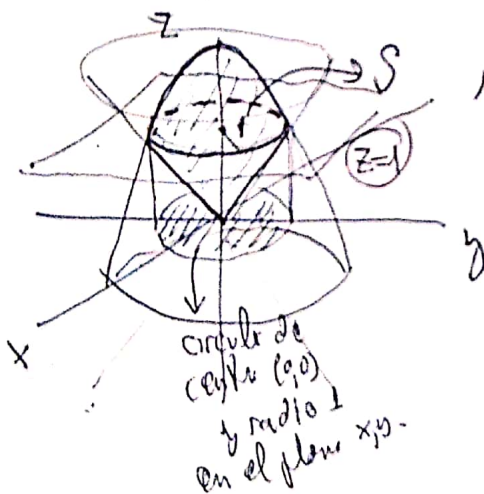 z
S
r
z=1
y
x
circulo de
centro (0,0)
y radio 1
en el plano x,y.